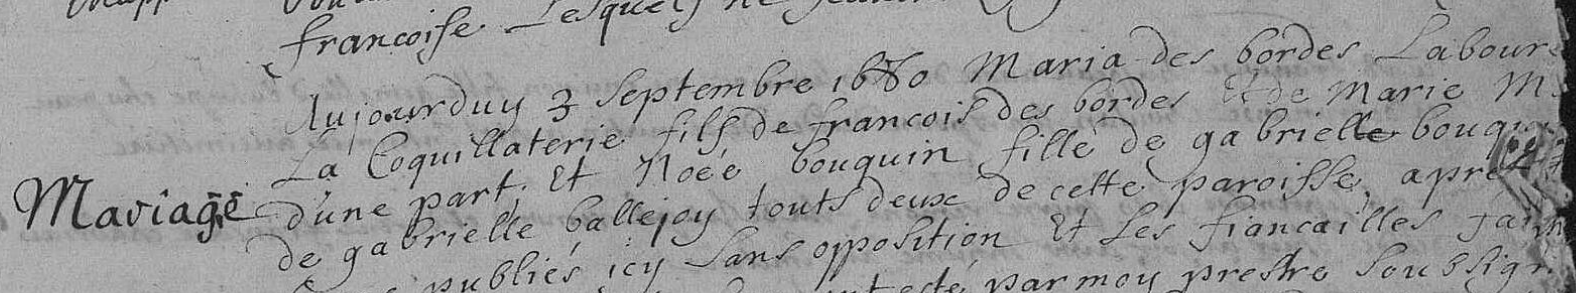 francoise Lesquels ne
Aujourduy 3 Septembre 1680 Maria des bordes Labour
La Coquillaterie fils de francois des bordes Et de Marie M
Mariage
d'une part, Et Noée bouquin fille de gabrielle bouqu
de gabrielle ballejoy touts deux de cette paroisse, apre
publiés icy sans opposition Et Les fiancailles fai
par moy prestre soubsign